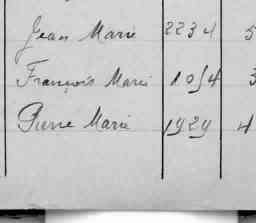 Jean Marie 2234 5
François Marie 1054 3
Pierre Marie 1929 4